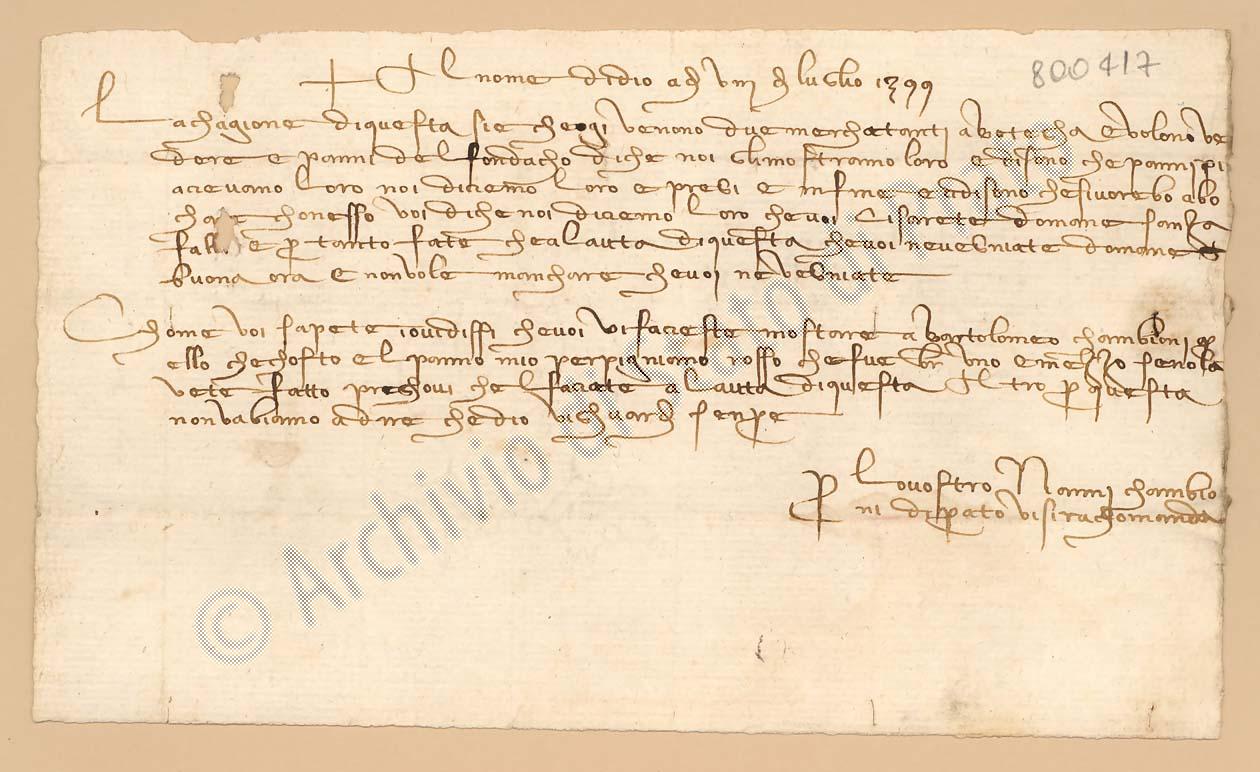 800417
+ Il nome di dio adì viii di luglio 1399
La chagione di questa sie che ogi venono due merchatanti a botecha e volono ve
dere e panni del fondacho diche noi gli mostramo loro e disono che panni pi
acievamo loro noi diciemo loro e pregi e infine e disono che si vorebo abo
char chonesso voi diche noi diciemo loro che voi ci sarete domane sanza
fallo e per tantto fate che alautta di questa che voi ne vegniate domane a
buona ora e non vole manchare che voi ne vegniate
Chome voi sapete io vi dissi che voi vi facieste mostrare a bartolomeo chambioni qu
ello che chosto el panno mio perpigniano rosso che fue br uno e mezzo se nola
vete fatto preghovi che l faciate alautta di questa Altro per questa
non vabiamo a dire che dio vi ghuardi senpre
per lo vostro Nanni chambio
ni di prato visirachomanda
© Archivio di Stato di Prato